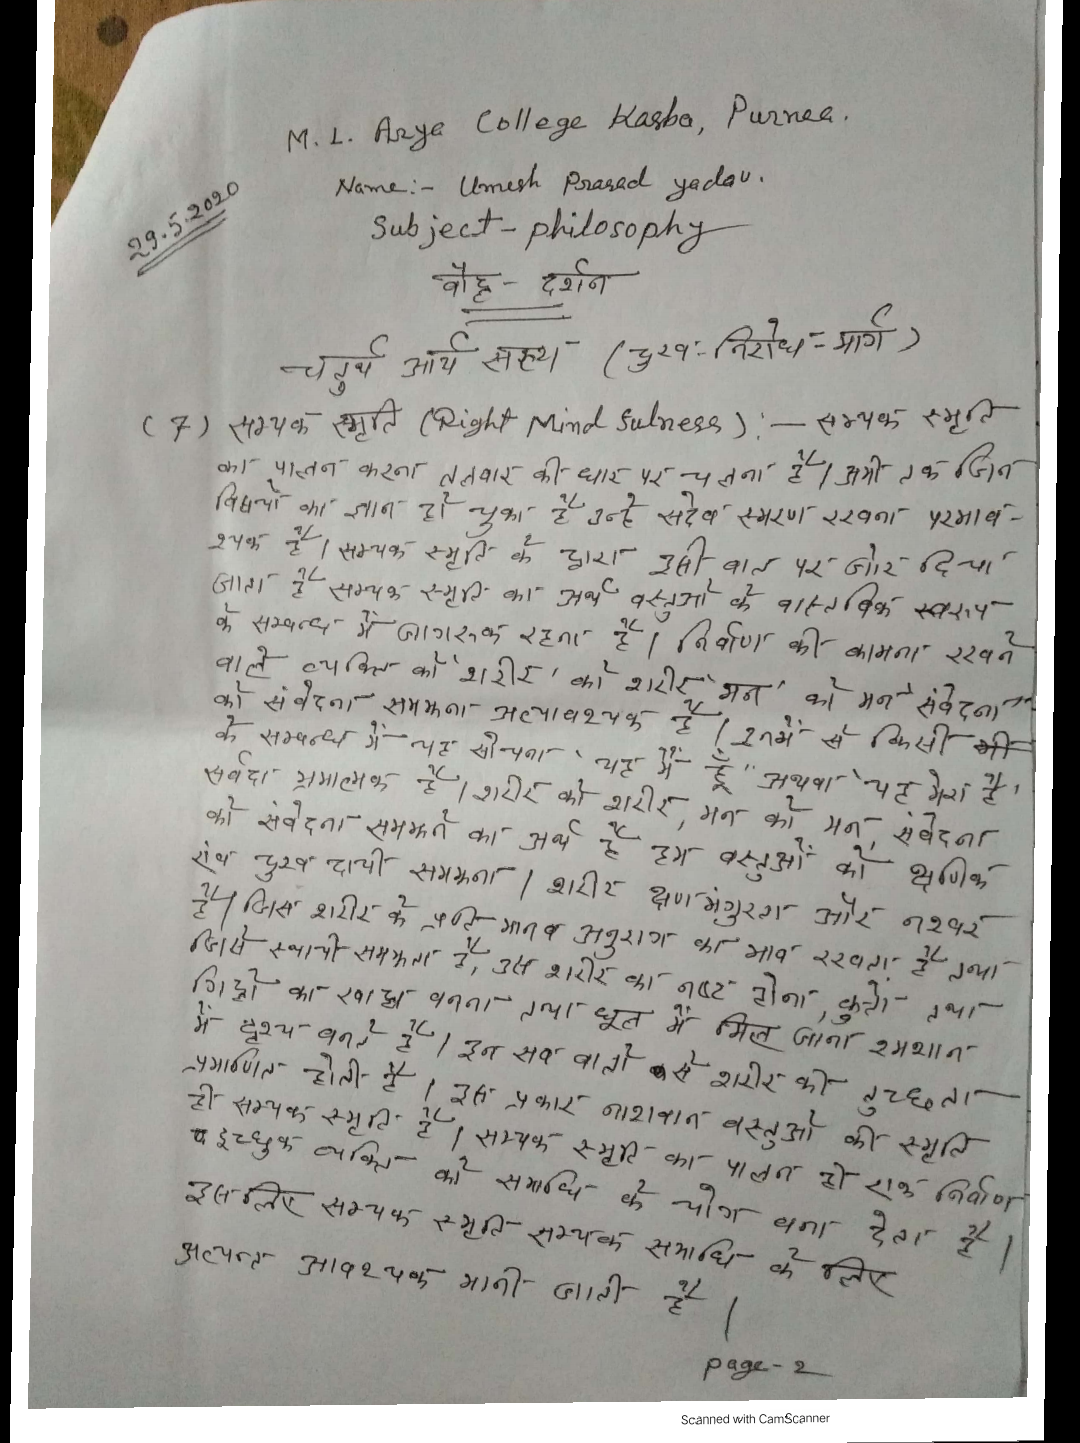 M. L. Arya College Kasba, Purnea.
Name:- Umesh Prasad yadav.
29.5.2020
Subject - philosophy
बौद्ध - दर्शन
चतुर्थ आर्य सत्य (दुःख-निरोध-मार्ग)
(7) सम्यक स्मृति (Right Mind fulness) :— सम्यक स्मृति
का पालन करना तलवार की धार पर चलना है। अभी तक जिन
विषयों का ज्ञान हो चुका है उन्हें सदैव स्मरण रखना परमाव-
श्यक है। सम्यक स्मृति के द्वारा इसी बात पर जोर दिया
जाता है सम्यक स्मृति का अर्थ वस्तुओं के वास्तविक स्वरूप
के सम्बन्ध में जागरूक रहना है। निर्वाण की कामना रखने
वाले व्यक्ति को 'शरीर' को शरीर, 'मन' को मन 'संवेदना'
को संवेदना समझना अत्यावश्यक है। इनमें से किसी भी
के सम्बन्ध में यह सोचना 'यह मैं हूँ' अथवा 'यह मेरा है'
सर्वदा भ्रमात्मक है। शरीर को शरीर, मन को मन, संवेदना
को संवेदना समझने का अर्थ है इन वस्तुओं को क्षणिक
एंव दुख दायी समझना। शरीर क्षणभंगुरता और नश्वर
है। जिस शरीर के प्रति मानव अनुराग का भाव रखता है तथा
जिसे स्थायी समझता है, उस शरीर का नष्ट होना, कुत्तो तथा
गिद्धों का खाद्य बनना तथा धूल में मिल जाना श्मशान
में दृश्य बनते है। इन सब बातों से शरीर की तुच्छता
प्रमाणित होती है। इस प्रकार नाशवान वस्तुओं की स्मृति
ही सम्यक स्मृति है। सम्यक स्मृति का पालन ही एक निर्वाण
इच्छुक व्यक्ति को समाधि के योग बना देता है।
इसलिए सम्यक स्मृति सम्यक समाधि के लिए
अत्यन्त आवश्यक मानी जाती है।
page-2
Scanned with CamScanner